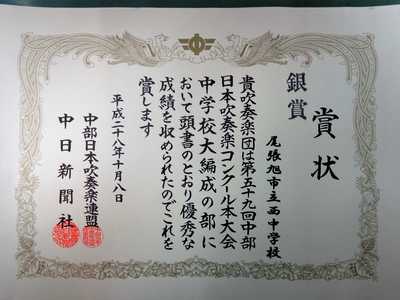 賞状
銀賞
尾張旭市立西中学校
貴吹奏楽団は第五十九回中部
日本吹奏楽コンクール本大会
中学校大編成の部に
おいて頭書のとおり優秀な
成績を収められたのでこれを
賞します
平成二十八年十月八日
中部日本吹奏楽連盟
中日新聞社